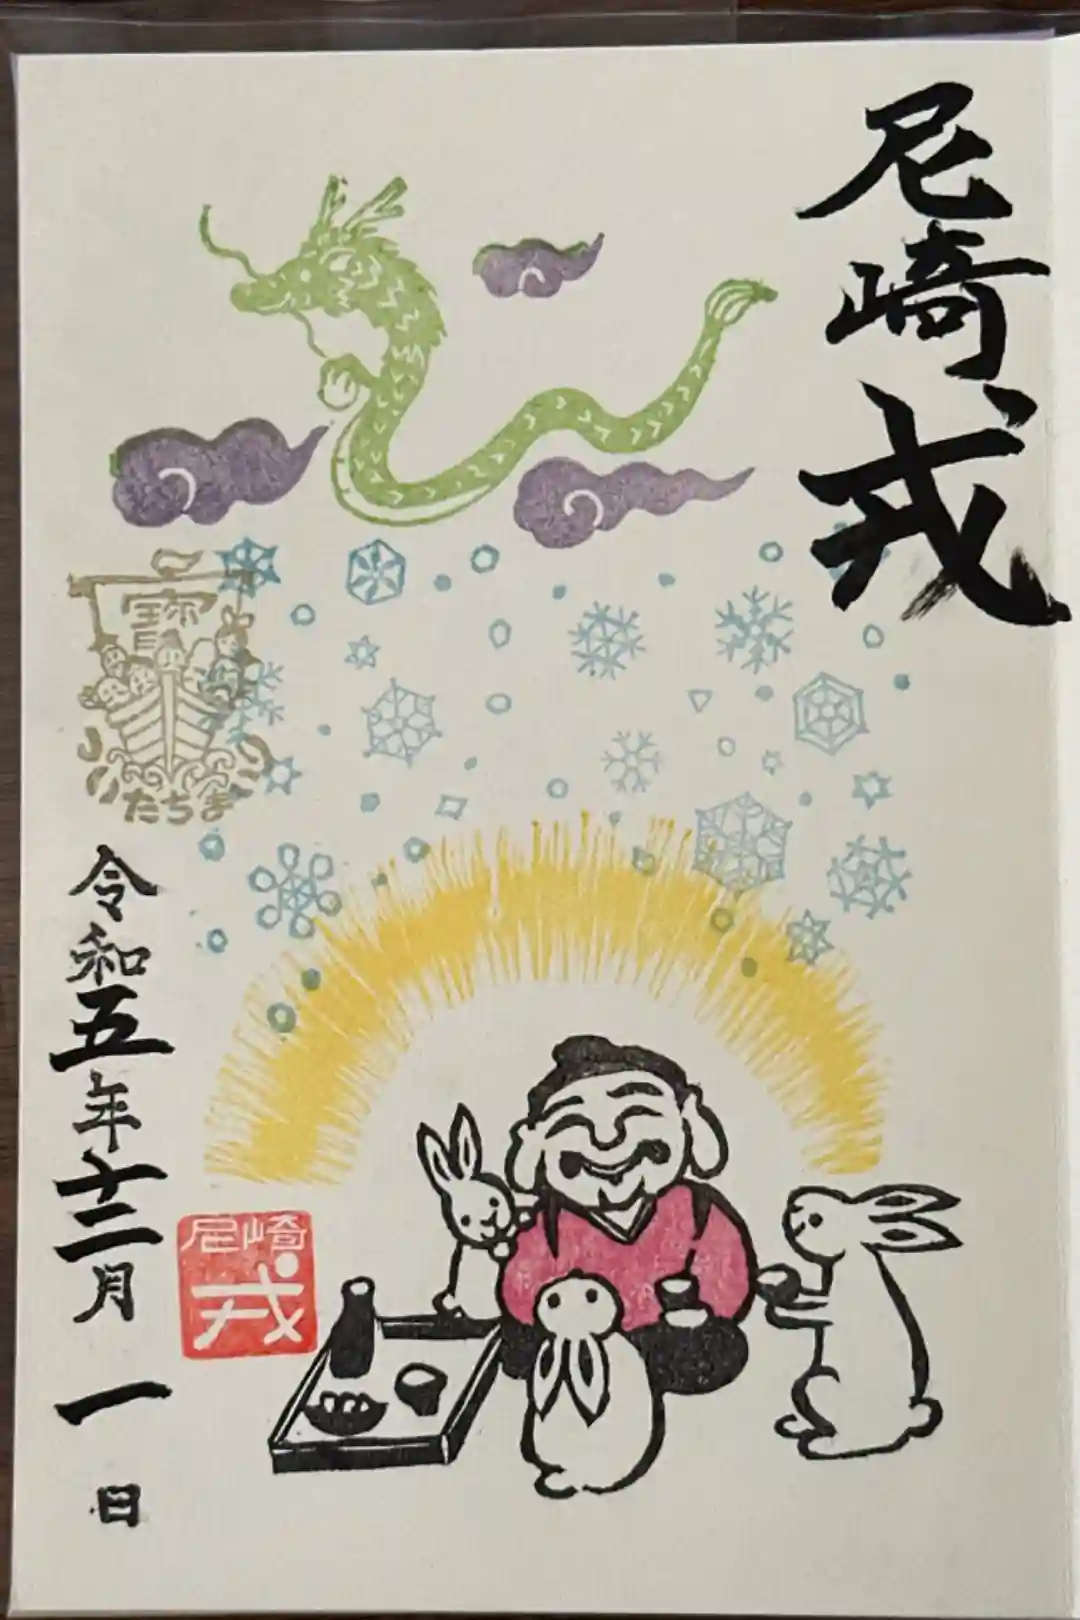 尼崎戎
寶
たちま
令和五年十二月一日
尼崎
戎